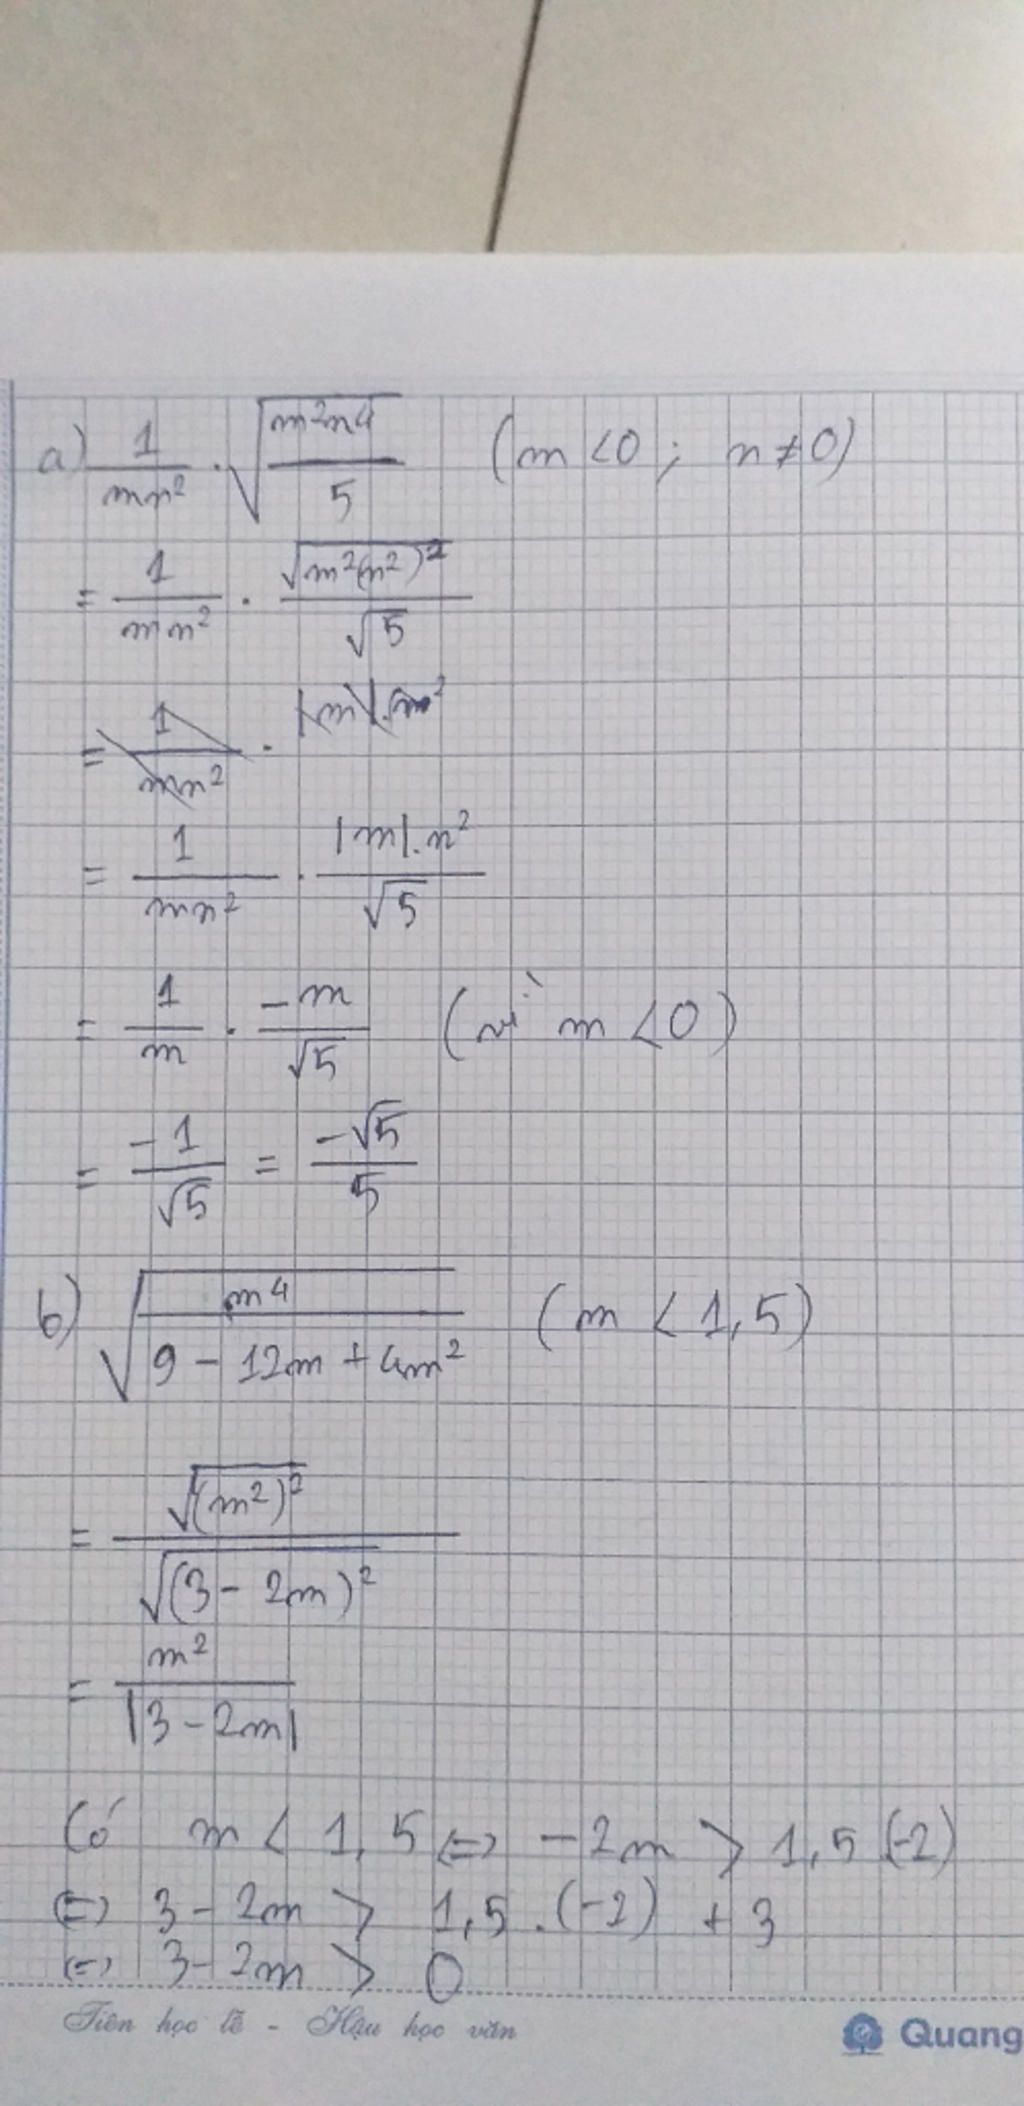 a) 1/mn² . √(m²n⁴/5) (m < 0 ; n ≠ 0)
= 1/mn² . √m²(n²)²/√5
= 1/mn² . |m|.n²
= 1/mn² . |m|.n²/√5
= 1/m . -m/√5 (vì m < 0)
= -1/√5 = -√5/5
b) √(m⁴/(9 - 12m + 4m²)) (m < 1,5)
= √(m²)²/√(3 - 2m)²
= m²/|3 - 2m|
Có m < 1,5 <=> -2m > 1,5 (-2)
<=> 3 - 2m > 1,5 . (-2) + 3
<=> 3 - 2m > 0
Tiên học lễ - Hậu học văn
Quang